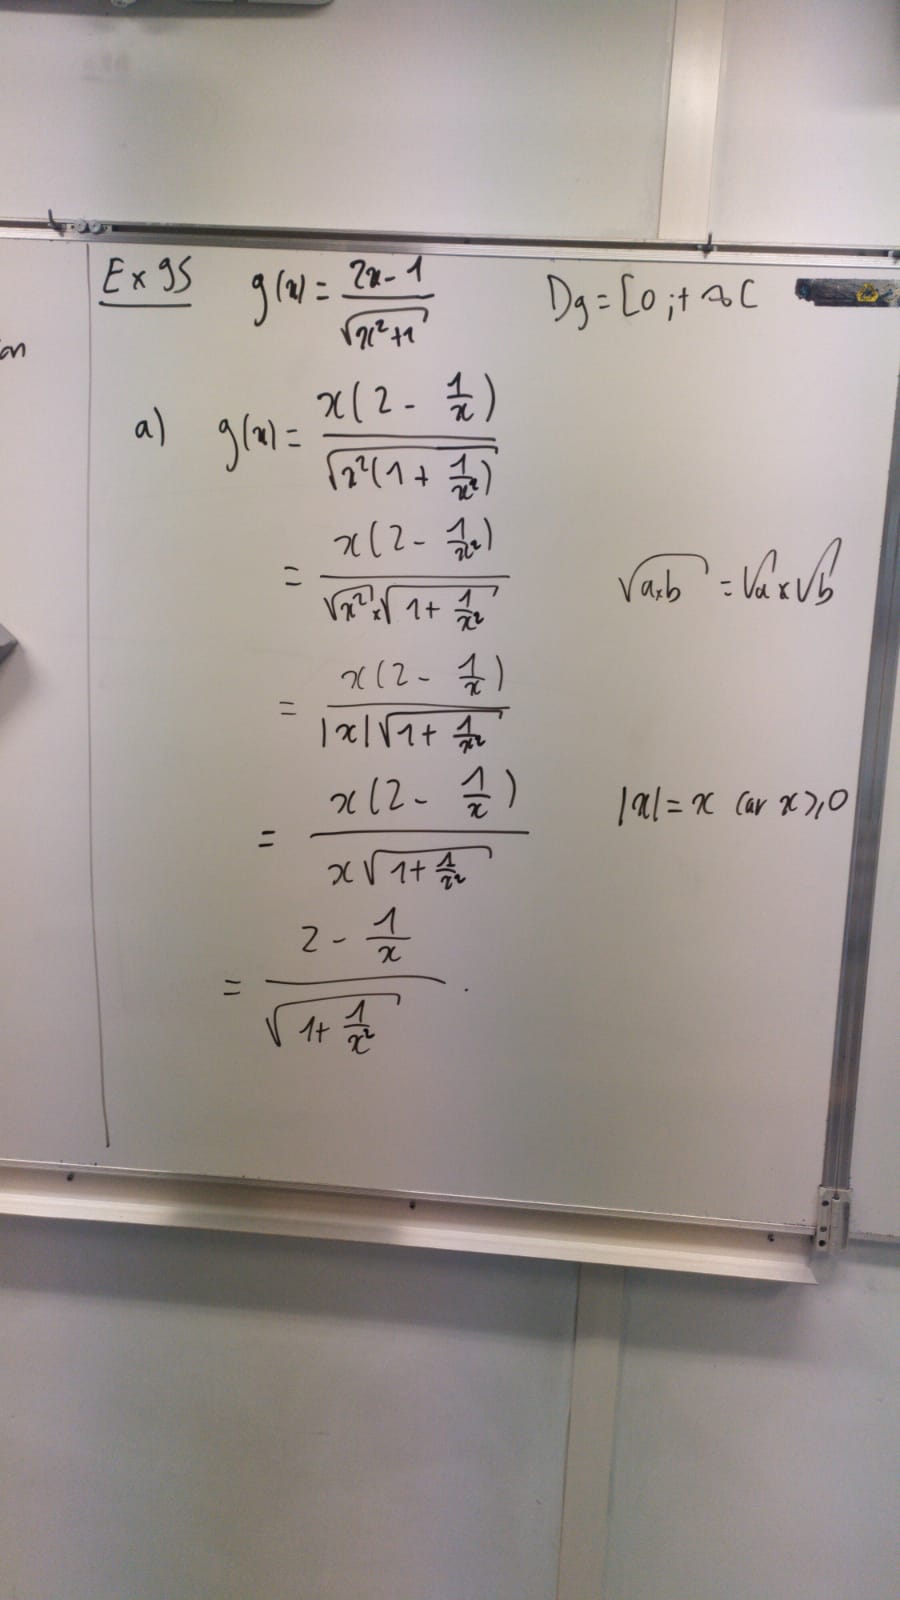 on
Ex 95 g(x) = (2x - 1)/√(x²+1) Dg = [0 ; +∞[
a) g(x) = x(2 - 1/x)/√(x²(1 + 1/x²))
= x(2 - 1/x²)/(√x² × √(1 + 1/x²)) √(a×b) = √a × √b
= x(2 - 1/x)/(|x|√(1 + 1/x²))
= x(2 - 1/x)/(x√(1 + 1/x²)) |x| = x car x ⩾ 0
= (2 - 1/x)/√(1 + 1/x²) .